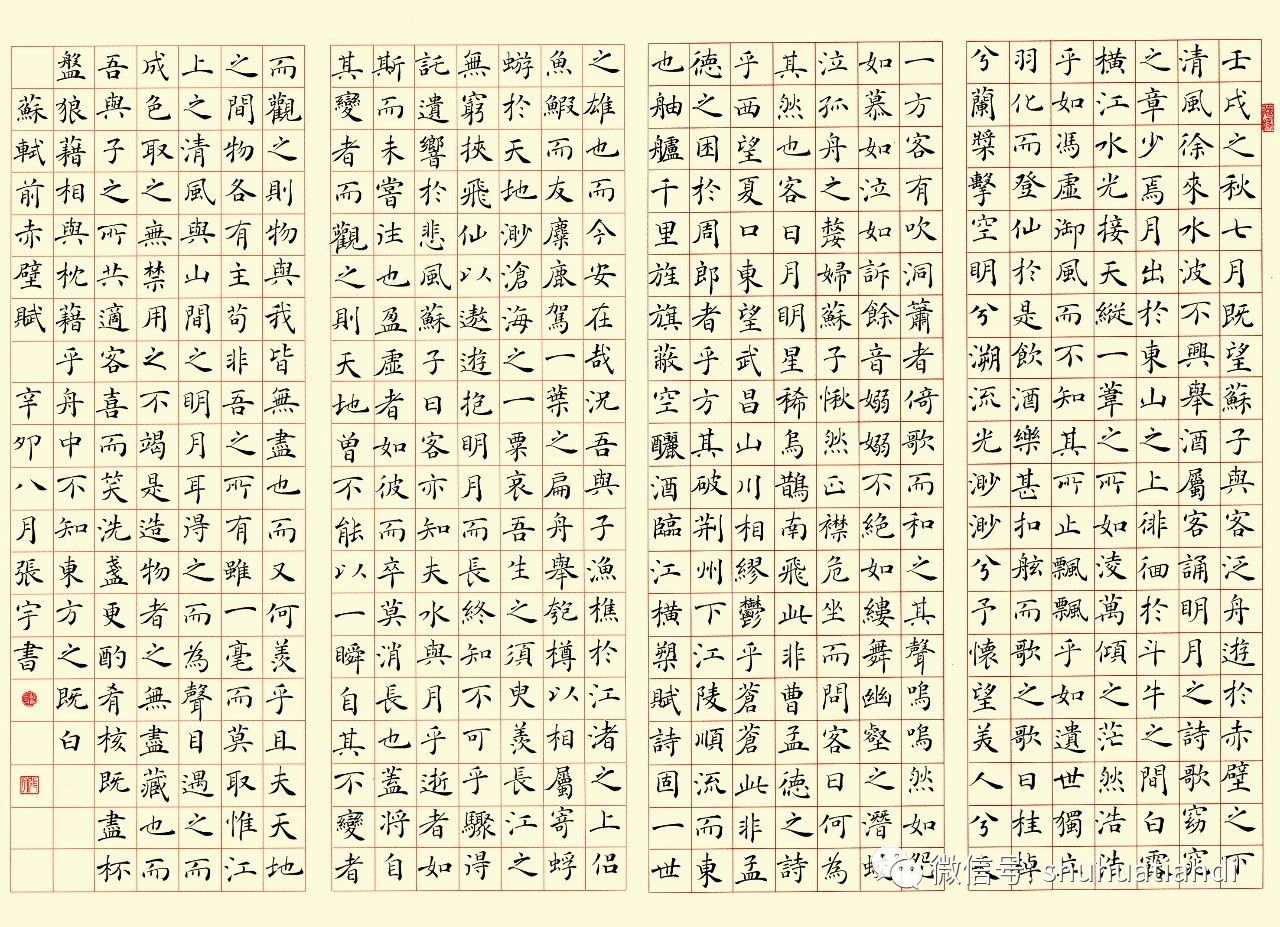 壬戌之秋七月既望蘇子與客泛舟遊於赤壁之下
清風徐來水波不興舉酒屬客誦明月之詩歌窈窕
之章少焉月出於東山之上徘徊於斗牛之間白露
橫江水光接天縱一葦之所如淩萬傾之茫然浩浩
乎如馮虛御風而不知其所止飄飄乎如遺世獨立
羽化而登仙於是飲酒樂甚扣舷而歌之歌曰桂棹
兮蘭槳擊空明兮溯流光渺渺兮予懷望美人兮天
一方客有吹洞簫者倚歌而和之其聲嗚嗚然如怨
如慕如泣如訴餘音嫋嫋不絕如縷舞幽壑之潛蛟
泣孤舟之嫠婦蘇子愀然正襟危坐而問客曰何為
其然也客曰月明星稀烏鵲南飛此非曹孟德之詩
乎西望夏口東望武昌山川相繆鬱乎蒼蒼此非孟
德之困於周郎者乎方其破荊州下江陵順流而東
也舳艫千里旌旗蔽空釃酒臨江橫槊賦詩固一世
之雄也而今安在哉況吾與子漁樵於江渚之上侶
魚鰕而友麋鹿駕一葉之扁舟舉匏樽以相屬寄蜉
蝣於天地渺滄海之一粟哀吾生之須臾羨長江之
無窮挾飛仙以遨遊抱明月而長終知不可乎驟得
託遺響於悲風蘇子曰客亦知夫水與月乎逝者如
斯而未嘗往也盈虛者如彼而卒莫消長也蓋將自
其變者而觀之則天地曾不能以一瞬自其不變者
而觀之則物與我皆無盡也而又何羨乎且夫天地
之間物各有主苟非吾之所有雖一毫而莫取惟江
上之清風與山間之明月耳得之而為聲目遇之而
成色取之無禁用之不竭是造物者之無盡藏也而
吾與子之所共適客喜而笑洗盞更酌肴核既盡杯
盤狼藉相與枕藉乎舟中不知東方之既白
蘇軾前赤壁賦 辛卯八月張宇書
微信号: shuhuatiandi